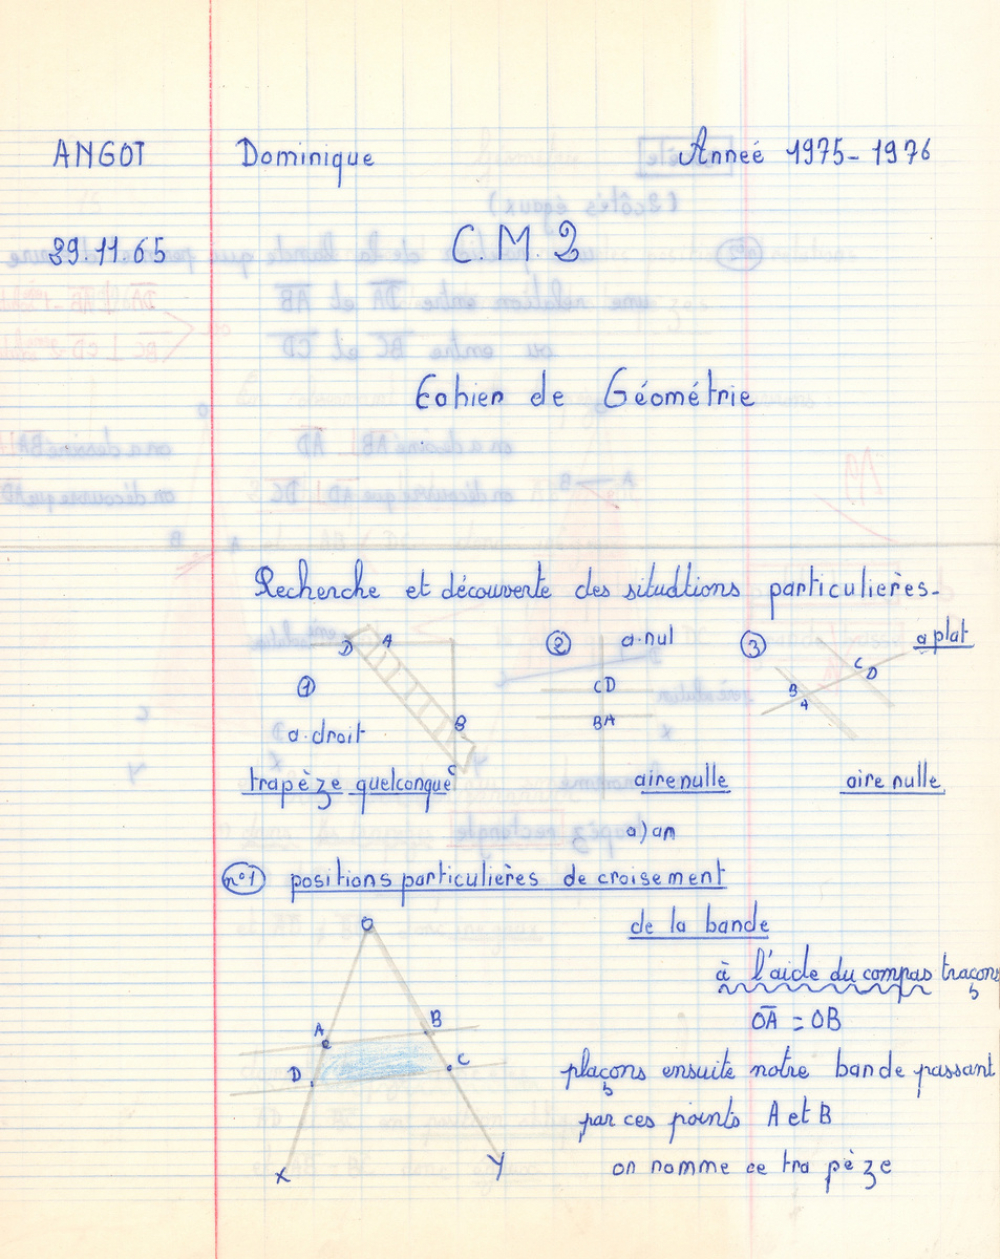 ANGOT Dominique Anneé 1975-1976
29.11.65 C.M.2
Cahier de Géométrie
Recherche et découverte des situations particulières.
D A ② a.nul ③ a plat
① CD C D
B B A BA
a.droit
C
trapèze quelconque aire nulle aire nulle
a) an
n°1 positions particulières de croisement
O de la bande
à l'aide du compas traçons
A B OA = OB
D C plaçons ensuite notre bande passant
par ces points A et B
X Y on nomme ce tra pèze